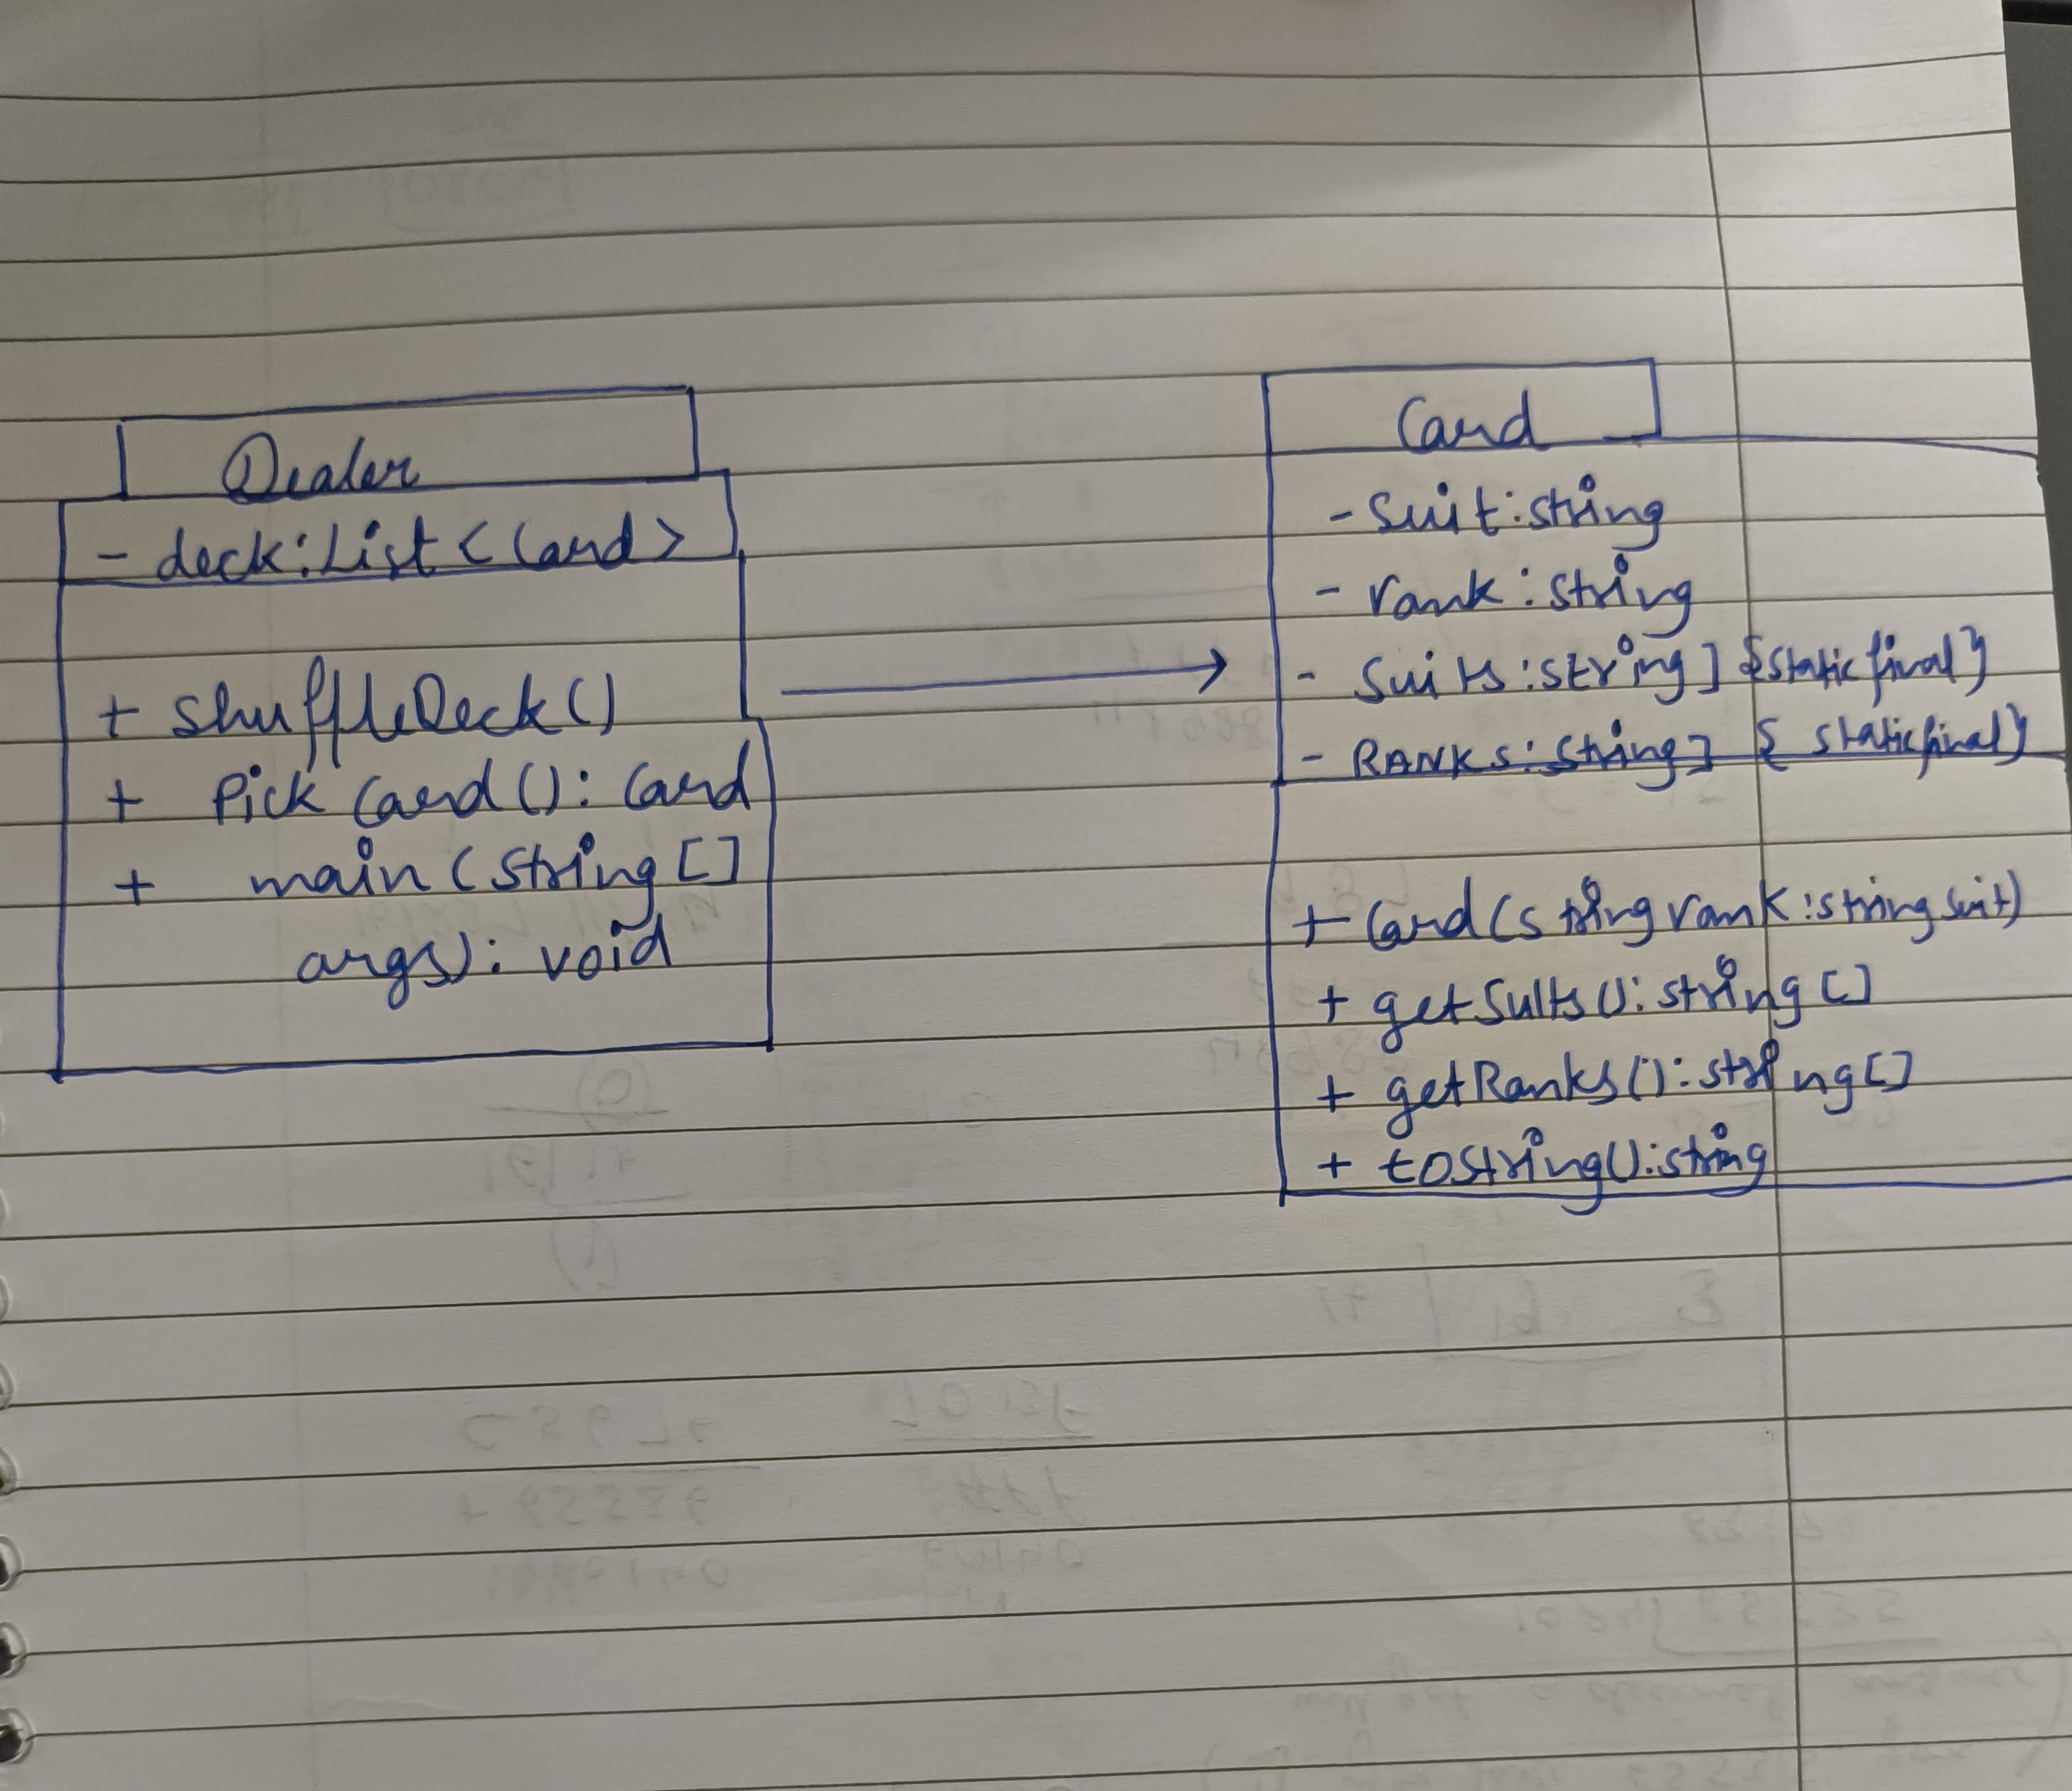 Dealer
- deck:List<Card>
+ shuffleDeck()
+ Pick Card(): Card
+ main (String []
args): void
Card
- Suit:string
- rank:string
- Suits:string] {static final}
- RANKS:String] { static final}
+ Card (string rank:string suit)
+ getSuits():string []
+ getRanks():string[]
+ toString():string